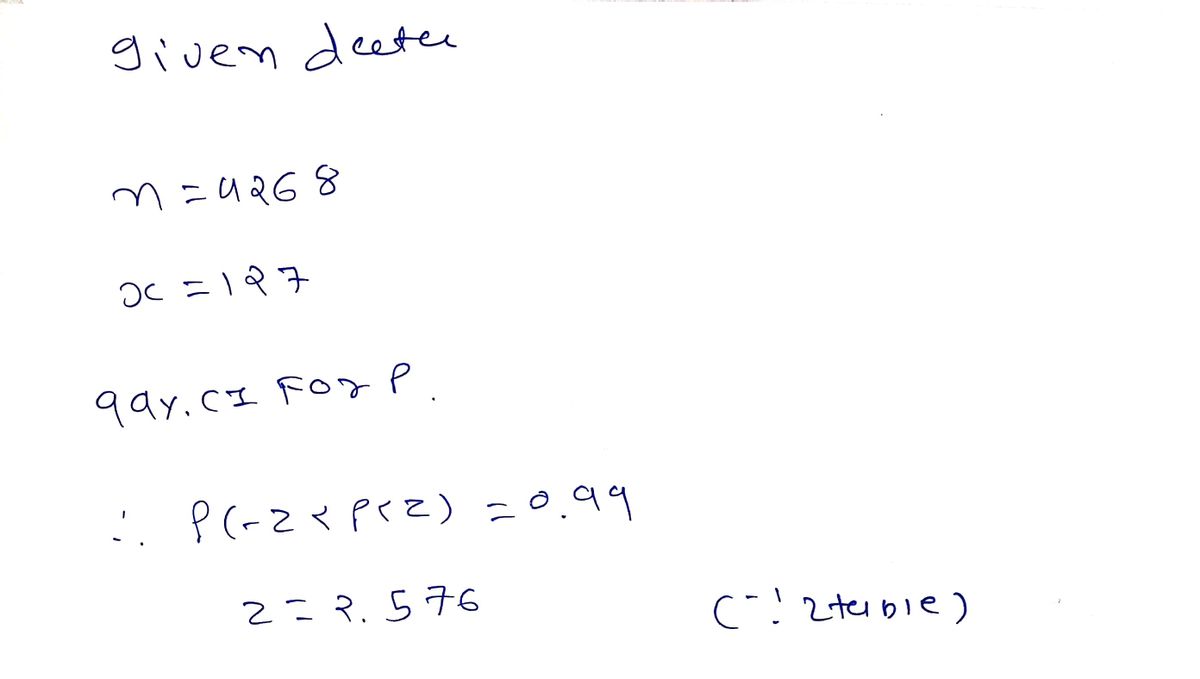 given data
n = 4268
x = 127
99%. CI For P.
∴ P(-z < P < z) = 0.99
z = 2.576 (∵ z table)